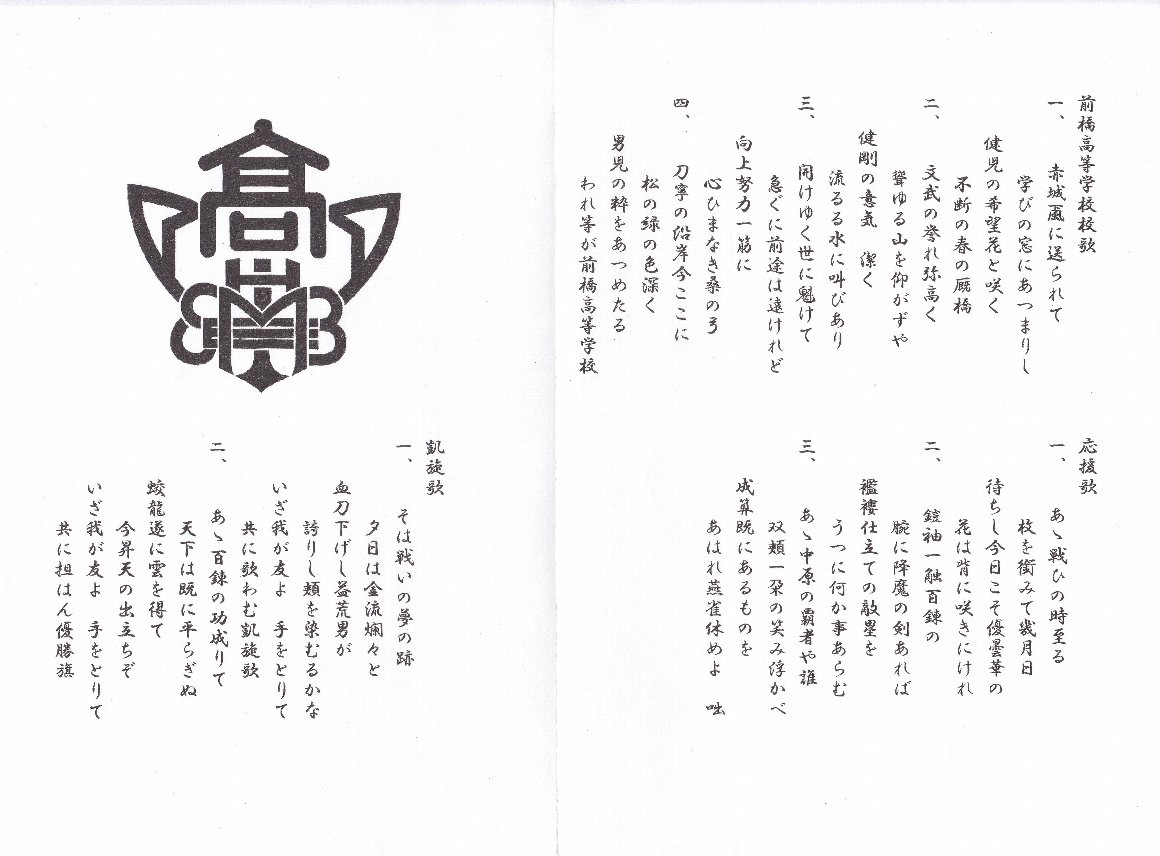 前橋高等学校校歌
一、 赤城颪に送られて
学びの窓にあつまりし
健児の希望花と咲く
不断の春の厩橋
二、 文武の誉れ弥高く
聳ゆる山を仰がずや
健剛の意気 潔く
流るる水に叫びあり
三、 開けゆく世に魁けて
急ぐに前途は遠けれど
向上努力一筋に
心ひまなき桑の弓
四、 刀寧の沿岸今ここに
松の緑の色深く
男児の粋をあつめたる
われ等が前橋高等学校
応援歌
一、 あゝ戦ひの時至る
枚を銜みて幾月日
待ちし今日こそ優曇華の
花は背に咲きにけれ
二、 鎧袖一触百錬の
腕に降魔の剣あれば
襤褸仕立ての敵塁を
うつに何か事あらむ
三、 あゝ中原の覇者や誰
双頬一朶の笑み浮かべ
成算既にあるものを
あはれ燕雀休めよ 咄
高
凱旋歌
一、 そは戦いの夢の跡
夕日は金流爛々と
血刀下げし益荒男が
誇りし頬を染むるかな
いざ我が友よ 手をとりて
共に歌わむ凱旋歌
二、 あゝ百錬の功成りて
天下は既に平らぎぬ
蛟龍遂に雲を得て
今昇天の出立ちぞ
いざ我が友よ 手をとりて
共に担はん優勝旗